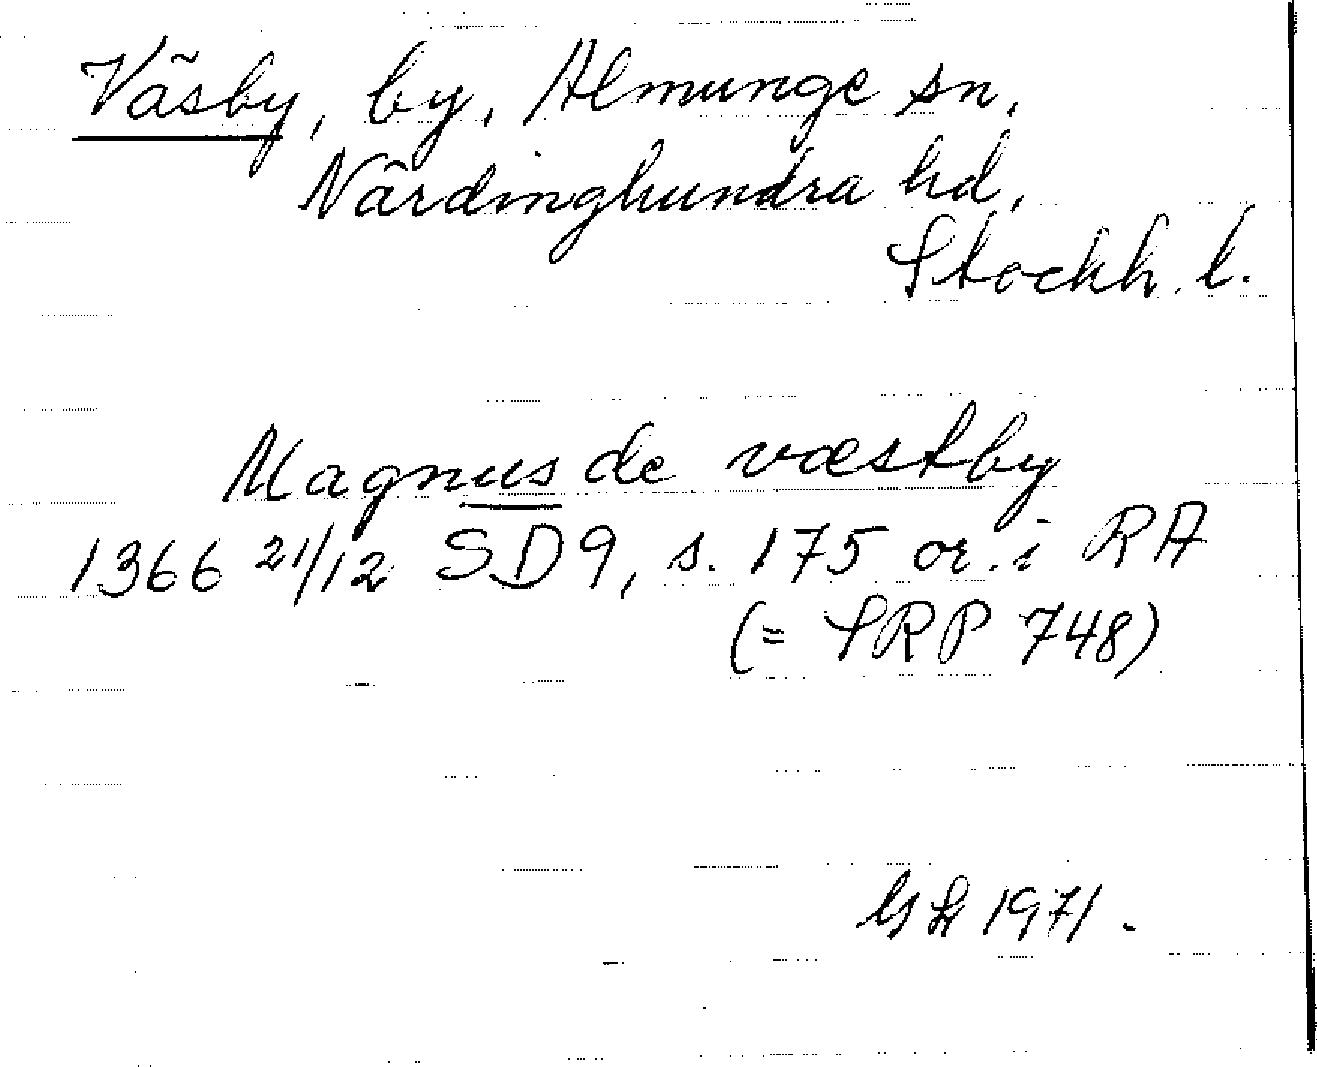 Väsby, by, Almunge sn,
Närdinghundra hd,
Stockh. l.
Magnus de væstby
1366 21/12 SD 9, s. 175 or. i RA
(= SRP 748)
1971.